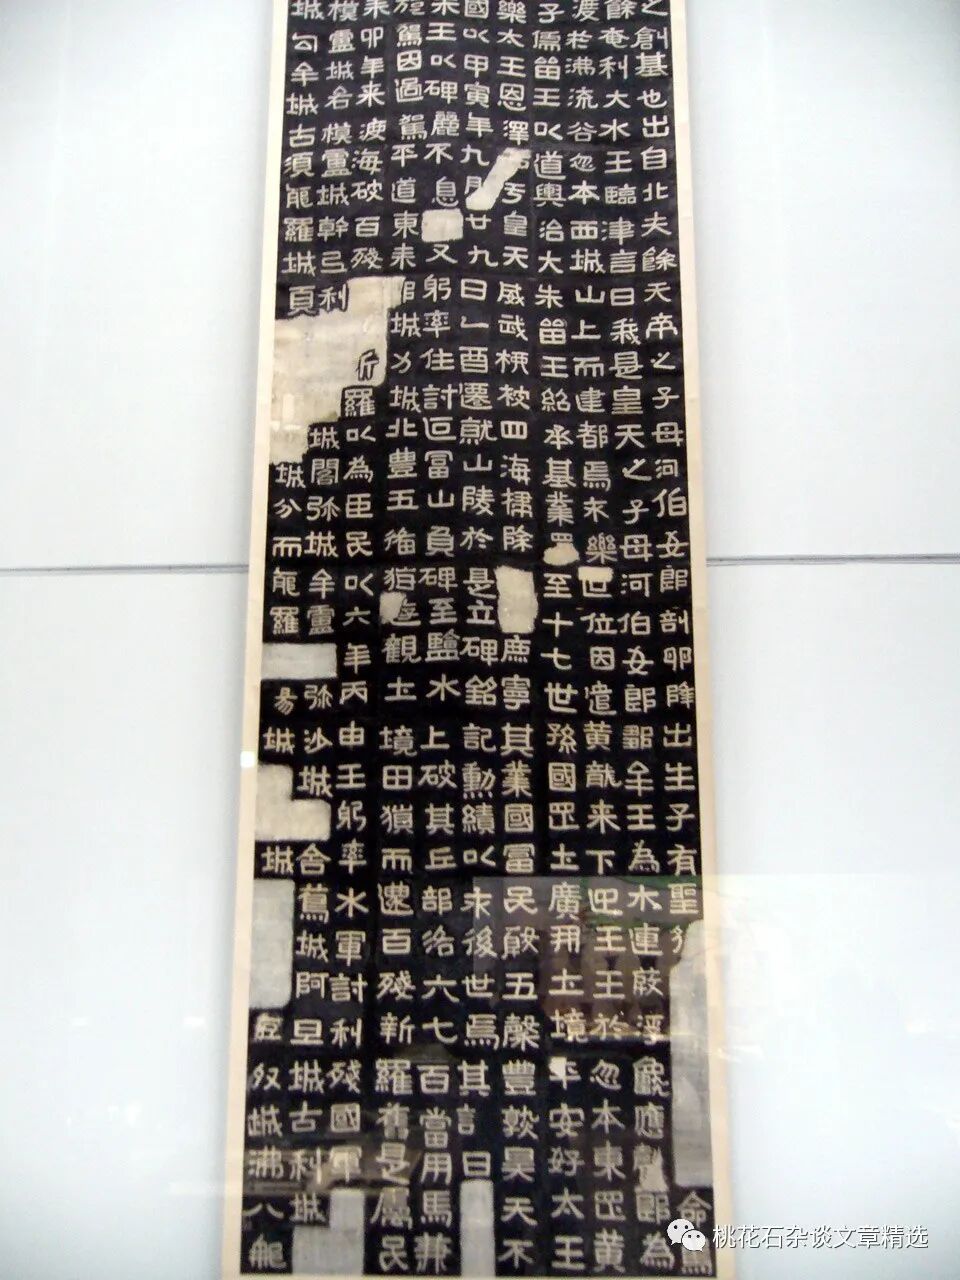 之創基也出自北夫餘天帝之子母河伯女郎剖卵降出生子有聖 命駕
餘奄利大水王臨津言曰我是皇天之子母河伯女郎鄒牟王為木連葭浮龜應聲即為
渡於沸流谷忽本西城山上而建都焉永樂世位因遣黃龍来下迎王王於忽本東罡黃
子儒留王以道輿治大朱留王紹承基業至十七世孫國罡上廣開土境平安好太王
樂太王恩澤洽于皇天威武柳被四海掃除庶寧其業國富民殷五穀豐熟昊天不
國以甲寅年九月廿九日乙酉遷就山陵於是立碑銘記勳績以永後世焉其詞曰
永王以碑麗不息又躬率住討叵富山負碑至鹽水上破其丘部洛六七百當用馬兼
旋駕因過駕平道東来城力城北豐五備猶遊觀土境田獵而還百殘新羅舊是屬民
来卯年来渡海破百殘斤羅以為臣民以六年丙申王躬率水軍討利殘國軍
模盧城各模盧城幹弖利城閣弥城牟盧弥沙城舍蔦城阿旦城古利城
城勾牟城古須龍羅城頁城分而龍羅昜城城奴城沸八龍
桃花石杂谈文章精选